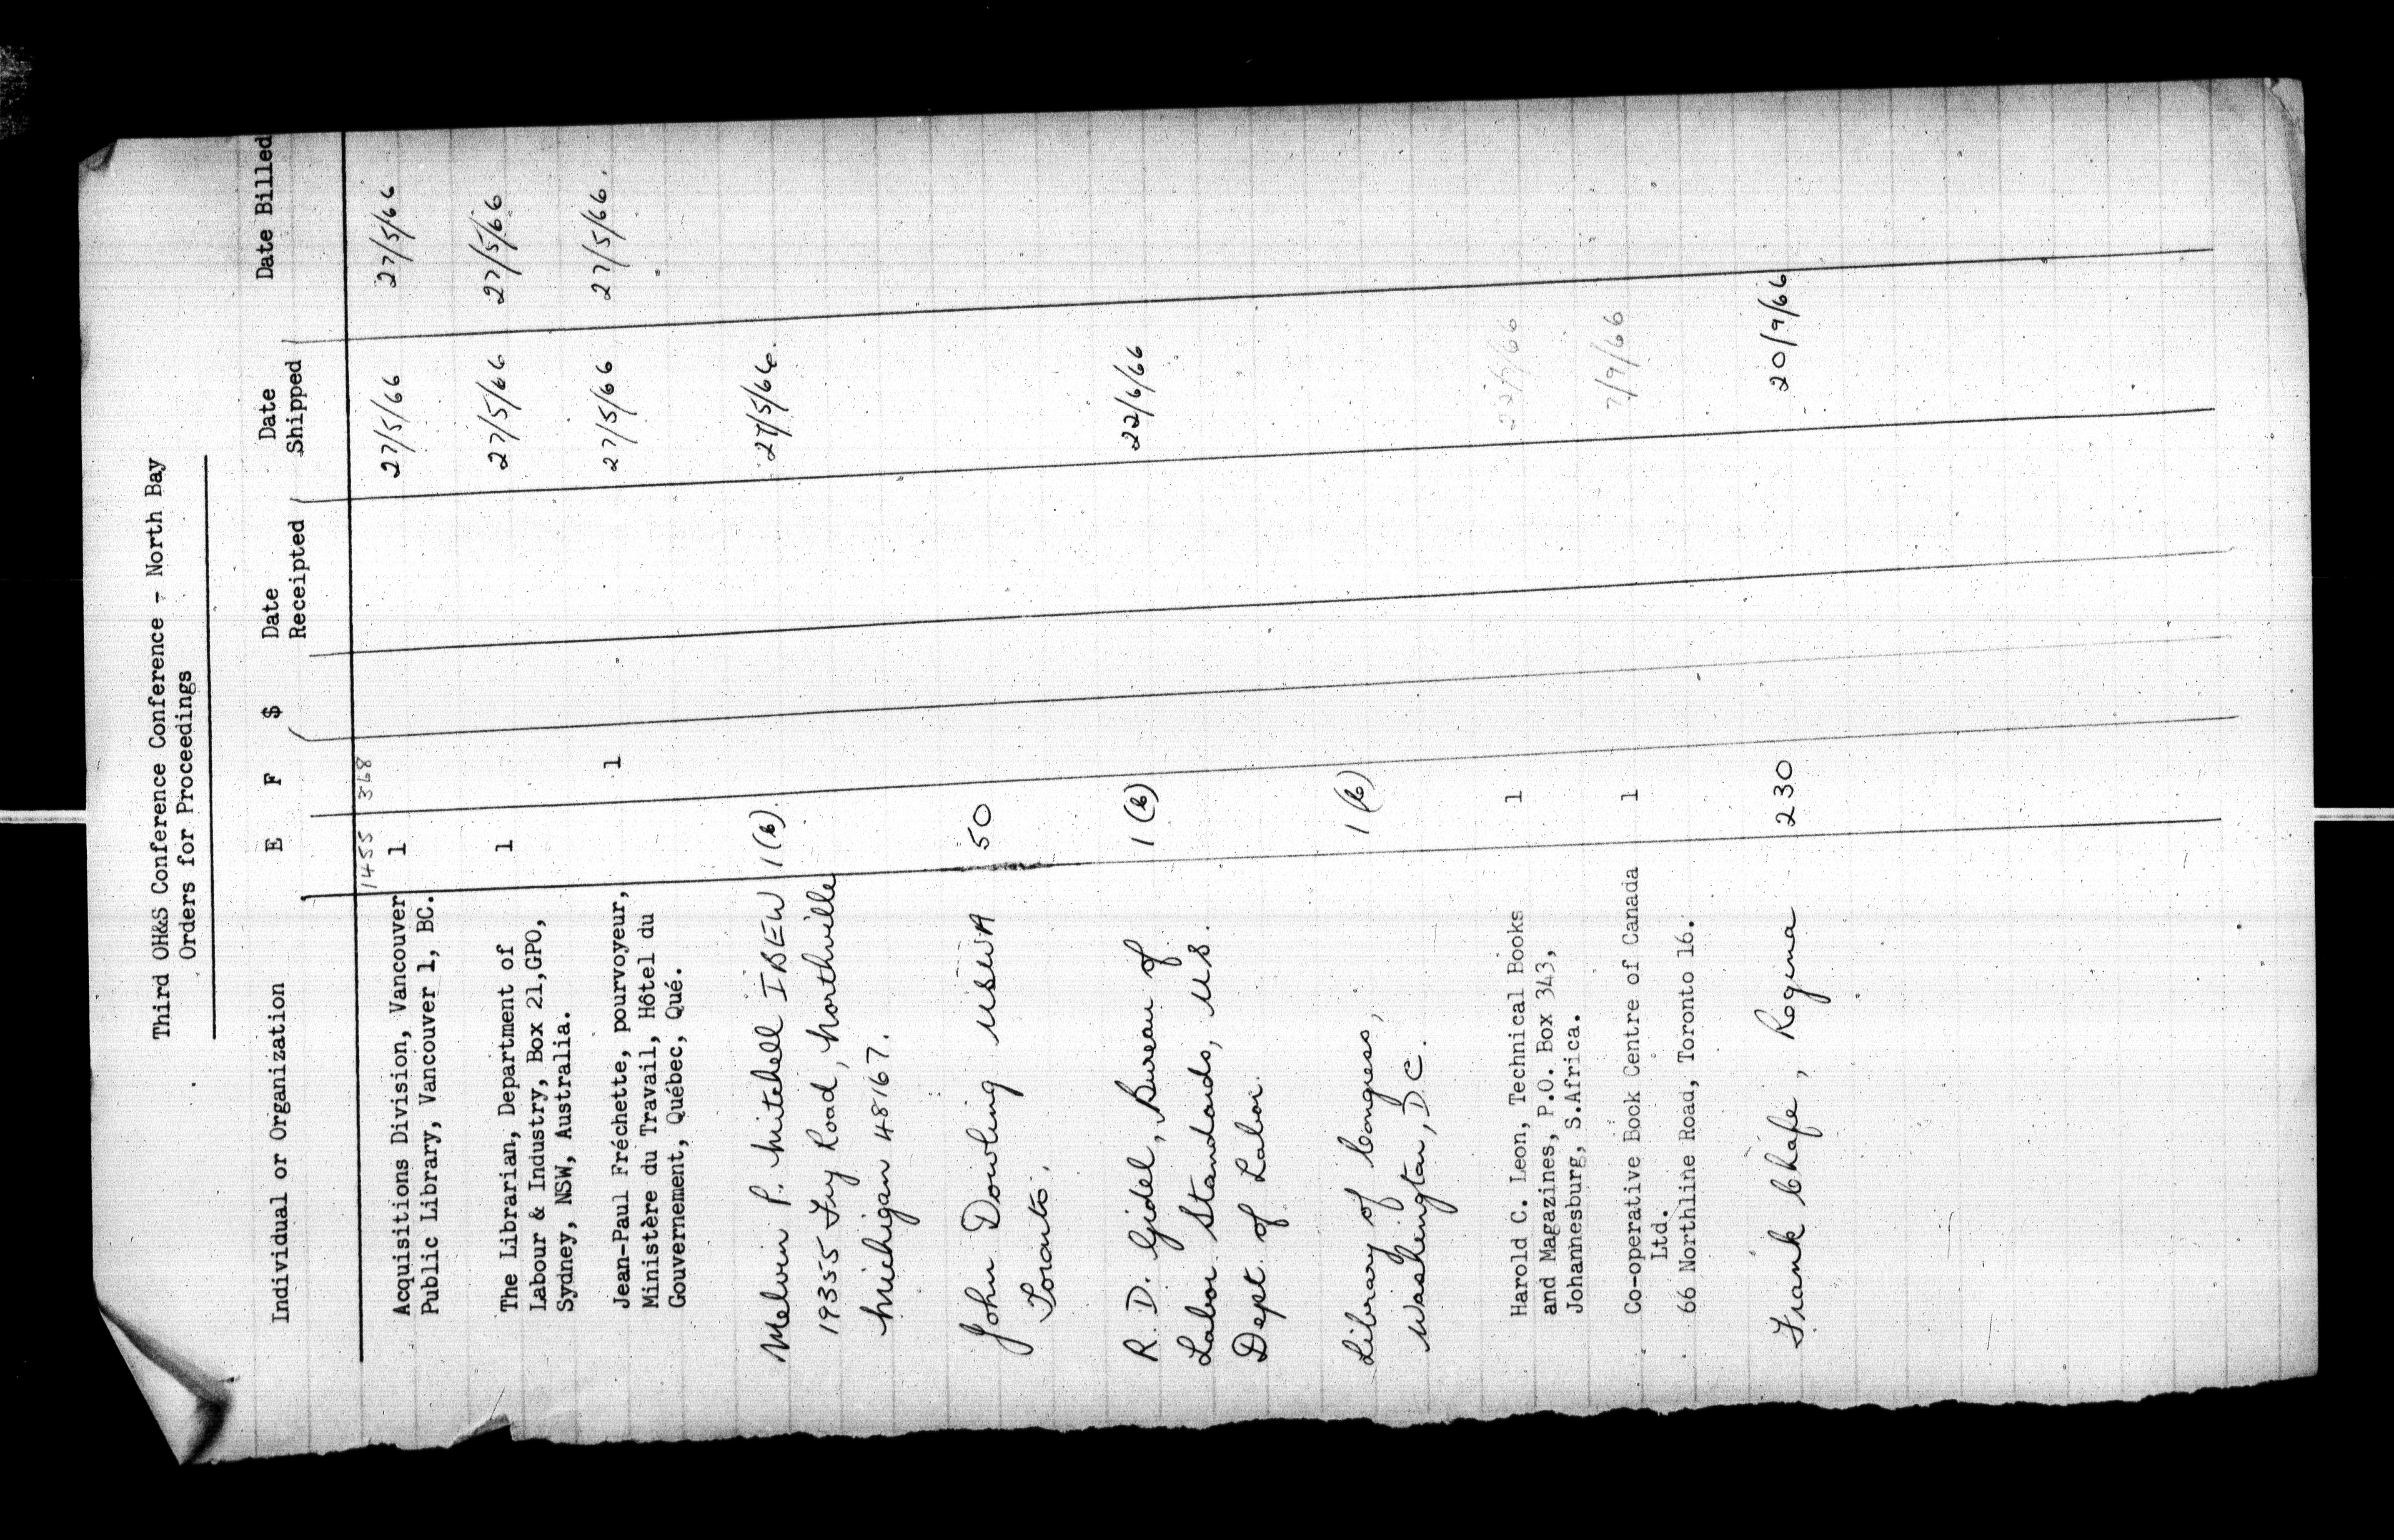 Third OH&S Conference Conference - North Bay
Orders for Proceedings
Individual or Organization E F $ Date Receipted Date Shipped Date Billed
1455 368
Acquisitions Division, Vancouver 1 27/5/66 27/5/66
Public Library, Vancouver 1, BC.
The Librarian, Department of 1 27/5/66 27/5/66
Labour & Industry, Box 21,GPO,
Sydney, NSW, Australia.
Jean-Paul Fréchette, pourvoyeur, 1 27/5/66 27/5/66.
Ministère du Travail, Hôtel du
Gouvernement, Québec, Qué.
Melvin P. Mitchell IBEW 1(b). 27/5/66.
19355 Fry Road, Northville
Michigan 48167.
John Dowling USWA 50
Toronto.
R. D. Gidel, Bureau of 1(b) 22/6/66
Labor Standards, U.S.
Dept. of Labor.
Library of Congress, 1(b)
Washington, D.C.
Harold C. Leon, Technical Books 1
and Magazines, P.O. Box 343,
Johannesburg, S.Africa.
Co-operative Book Centre of Canada 1 7/9/66
Ltd.
66 Northline Road, Toronto 16.
Frank Chafe, Regina 230 20/9/66